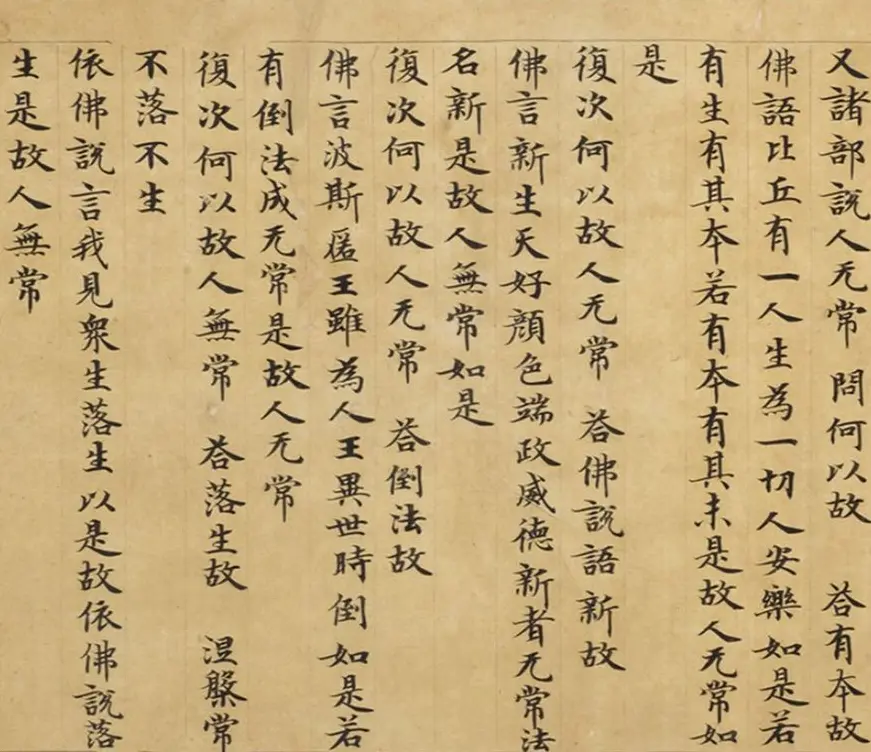 又諸部說人无常 問何以故 荅有本故
佛語比丘有一人生為一切人安樂如是若
有生有其本若有本有其末是故人无常如
是
復次何以故人无常 荅佛說語新故
佛言新生天好顔色端政威德新者无常法
名新是故人無常如是
復次何以故人无常 荅倒法故
佛言波斯匿王雖為人王異世時倒如是若
有倒法成无常是故人无常
復次何以故人無常 荅落生故 涅槃常
不落不生
依佛說言我見衆生落生以是故依佛說落
生是故人無常